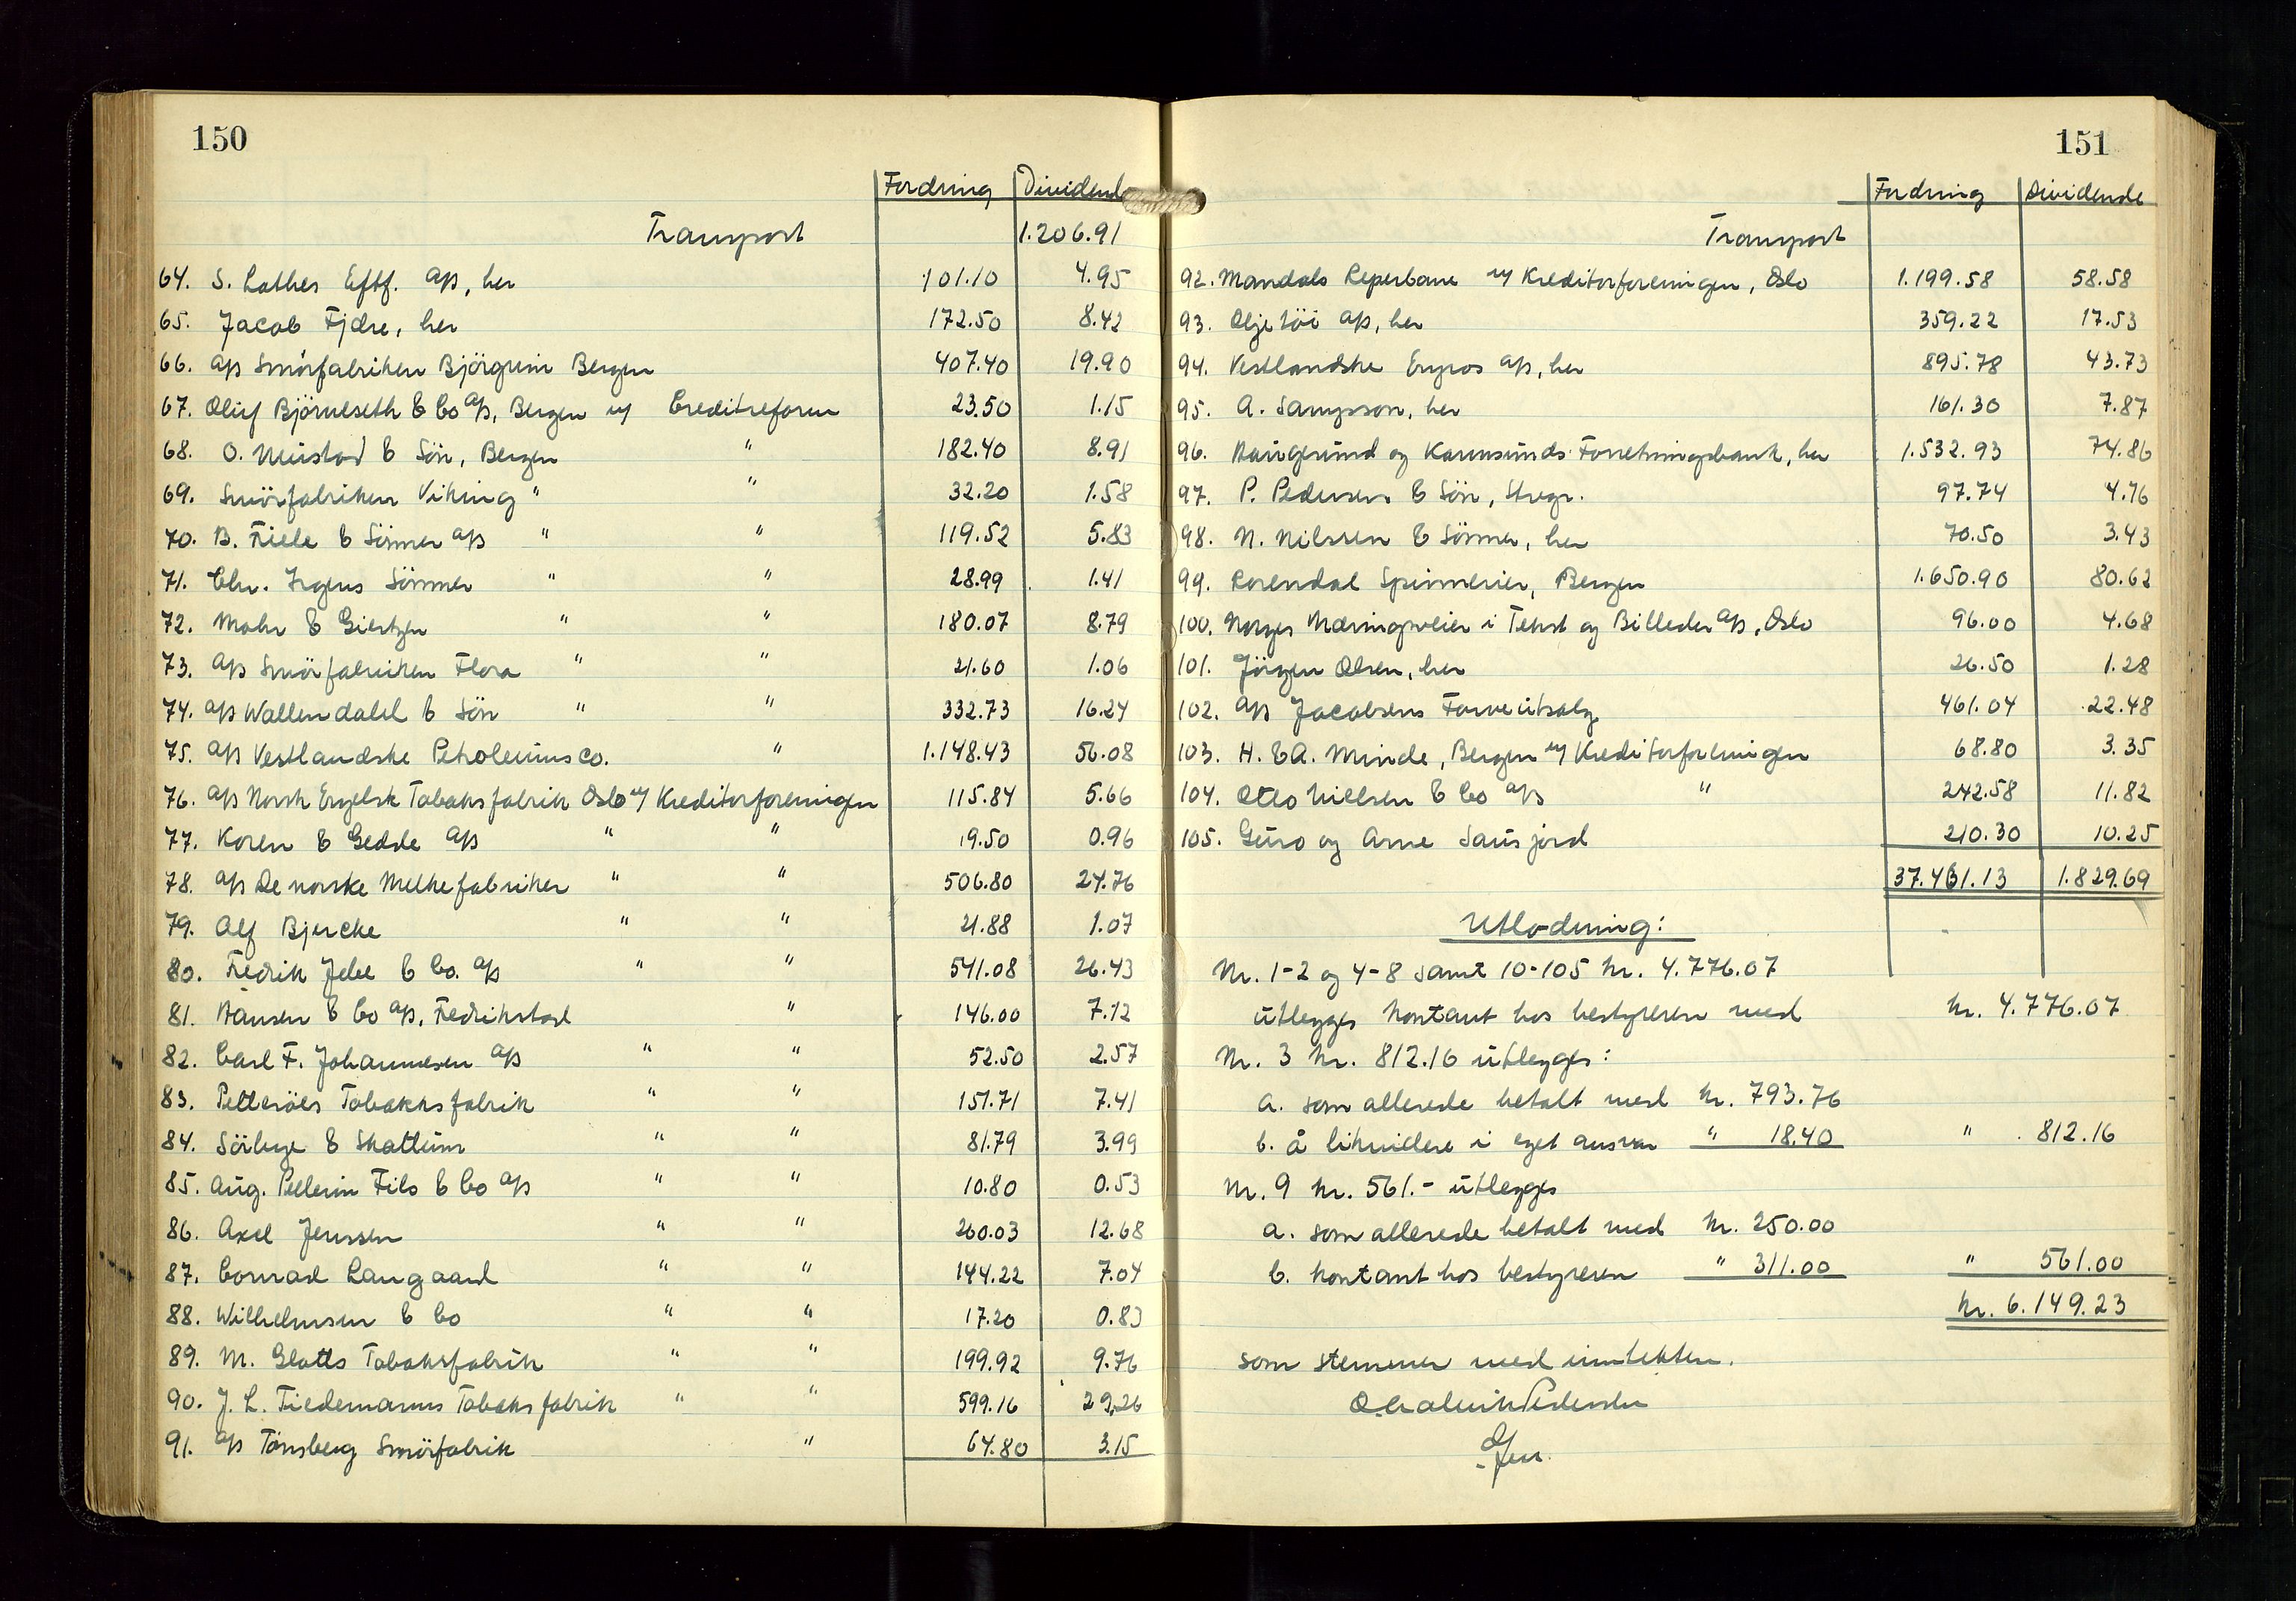 150
Fordring Dividende
Transport 1.206.91
64. S. Lothes Eftf. A/S, her 101.10 4.95
65. Jacob Fjære, her 172.50 8.42
66. A/S Smörfabriken Björgvin Bergen 407.40 19.90
67. Oluf Björnseth & Co A/S, Bergen v/ Creditreform 23.50 1.15
68. O. Mustad & Sön, Bergen " 182.40 8.91
69. Smörfabriken Viking " " 32.20 1.58
70. B. Friele & Sönner A/S " " 119.52 5.83
71. Chr. Irgens Sönner " " 28.99 1.41
72. Mohr & Giertzen " " 180.07 8.79
73. A/S Smörfabriken Flora " " 21.60 1.06
74. A/S Wallendahl & Sön " " 332.73 16.24
75. A/S Vestlandske Petroleums co. " 1.148.43 56.08
76. A/S Norsk Engelsk Tobaksfabrik Oslo v/ Kreditorforeningen 115.84 5.66
77. Koren & Gedde A/S " " 19.50 0.96
78. A/S De norske Melkefabriker " " 506.80 24.76
79. Alf Bjercke " " 21.88 1.07
80. Fredrik Jebe & Co. A/S " " 541.08 26.43
81. Hansen & Co A/S, Fredrikstad " 146.00 7.12
82. Carl F. Johannesen A/S " " 52.50 2.57
83. Petteröes Tobakksfabrik " " 151.71 7.41
84. Sörbye & Skattum " " 81.79 3.99
85. Aug. Pellerin Fils & Co A/S " " 10.80 0.53
86. Axel Jenssen " " 260.03 12.68
87. Conrad Langaard " " 144.22 7.04
88. Wilhelmsen & Co " " 17.20 0.83
89. M. Glotts Tobaksfabrik " " 199.92 9.76
90. J. L. Tiedemanns Tobaksfabrik " " 599.16 29,26
91. A/S Tönsberg Smörfabrik " 64.80 3.15
151
Fordring Dividende
Transport
92. Mandals Reperbane v/ Kreditorforeningen, Oslo 1.199.58 58.58
93. Oljetöi A/S, her 359.22 17.53
94. Vestlandske Engros A/S, her 895.78 43.73
95. A. Sampson, her 161.30 7.87
96. Haugesund og Karmsunds Forretningsbank, her 1.532.93 74.86
97. P. Pedersen & Sön, Stvgr. 97.74 4.76
98. N. Nilssen & Sönner, her 70.50 3.43
99. Rosendal Spinnerier, Bergen 1.650.90 80.62
100. Norges Næringsveier i Tekst og Billeder A/S, Oslo 96.00 4.68
101. Jörgen Olsen, her 26.50 1.28
102. A/S Jacobsens Farveutsalg 461.04 22.48
103. H. & A. Minde, Bergen v/ Kreditorforeningen 68.80 3.35
104. Otto Nielsen & Co A/S " 242.58 11.82
105. Guro og Arne Sausjord 210.30 10.25
37.461.13 1.829.69
Utlodning:
Nr. 1-2 og 4-8 samt 10-105 kr. 4.776.07
utlegges kontant hos bestyreren med kr. 4.776.07
Nr. 3 kr. 812.16 utlegges:
a. som allerede betalt med kr. 793.76
b. å likvidere i eget ansvar " 18.40 " 812.16
Nr. 9 kr. 561.- utlegges
a. som allerede betalt med kr. 250.00
b. kontant hos bestyreren " 311.00 " 561.00
kr. 6.149.23
som stemmer med inntekten.